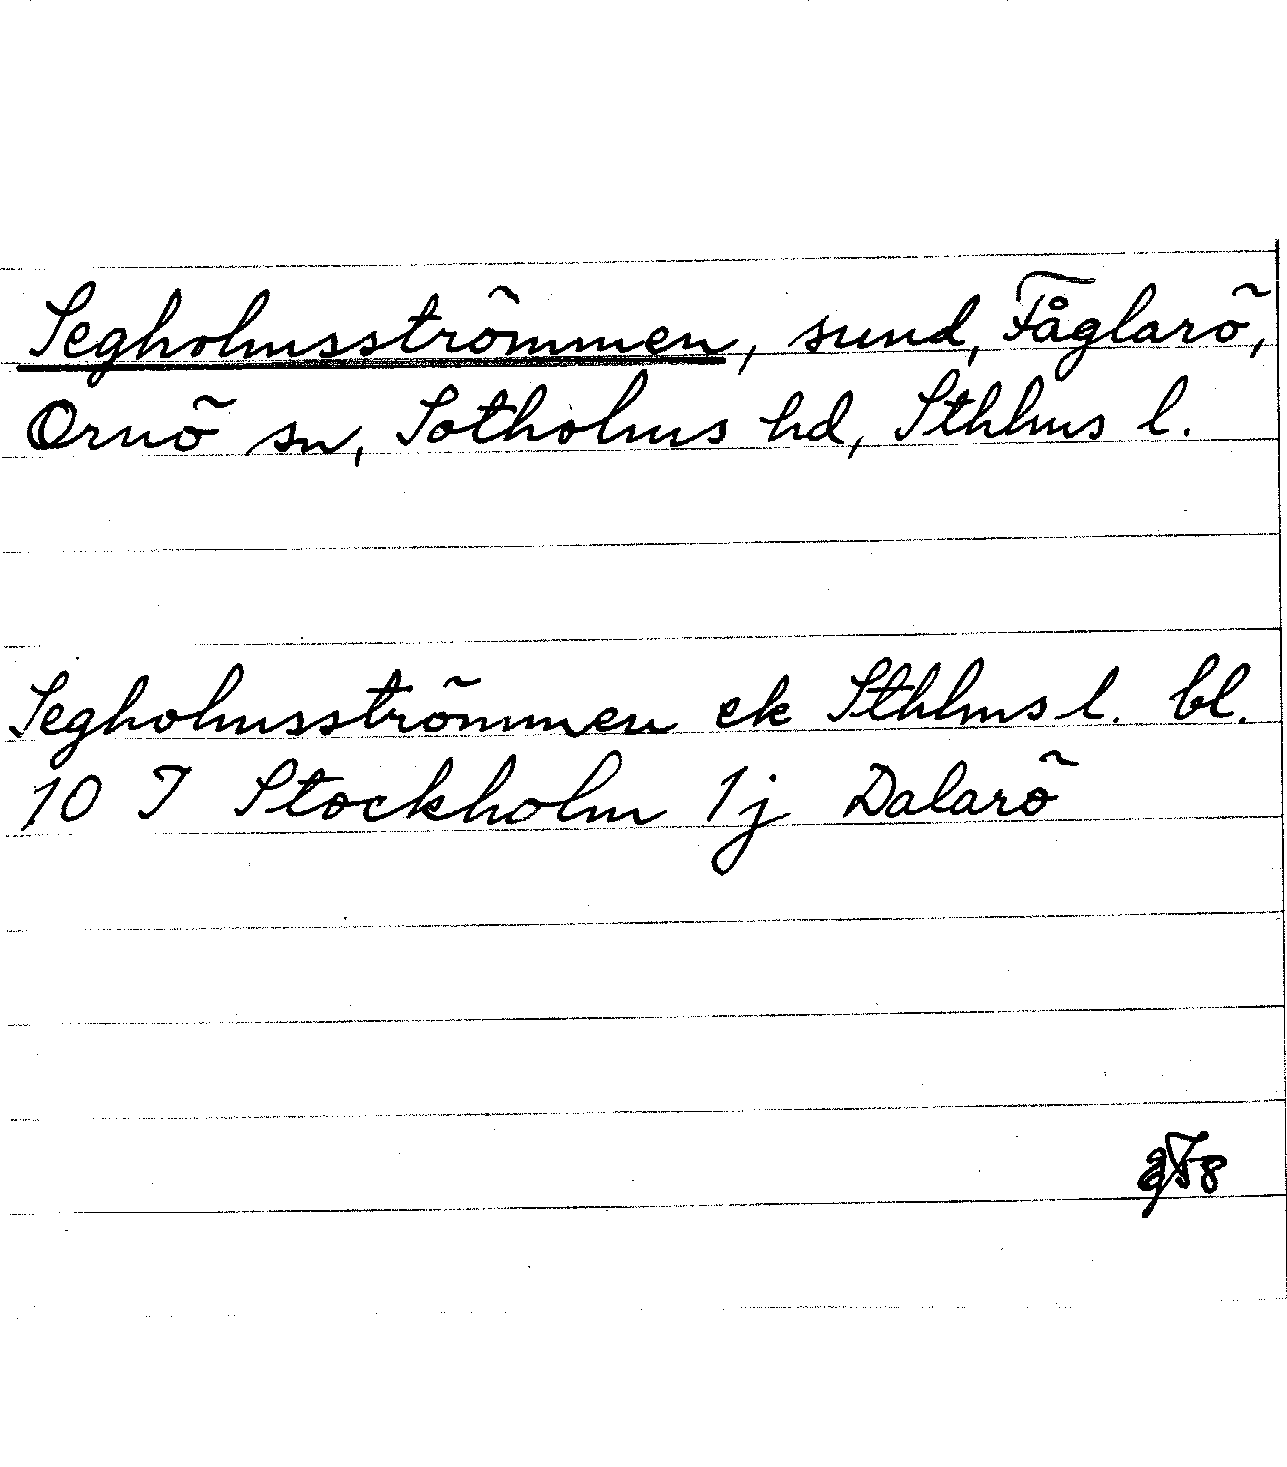 Segholmsströmmen, sund, Fåglarö,
Ornö sn, Sotholms hd, Sthlms l.
Segholmsströmmen ek Sthlms l. bl.
10 I Stockholm 1j Dalarö